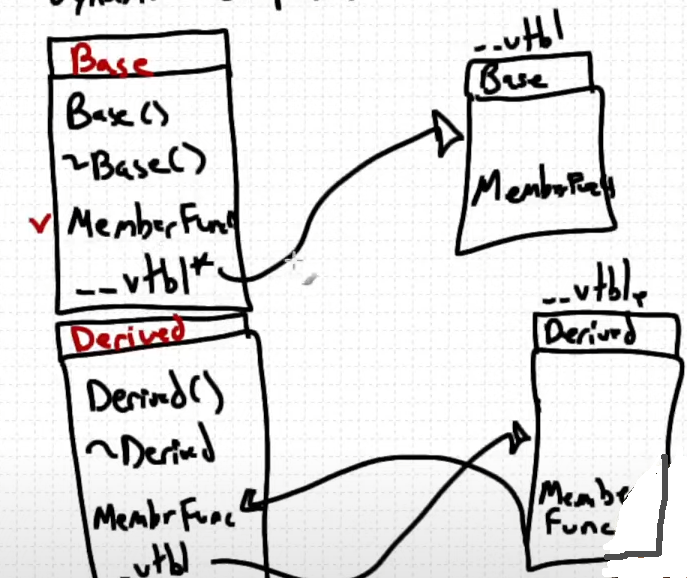 Base
Base()
~Base()
MemberFunc
__vtbl*
__vtbl
Base
MemberFunc
Derived
Derived()
~Derived
MembrFunc
vtbl
__vtbl
Derived
Membe
Func